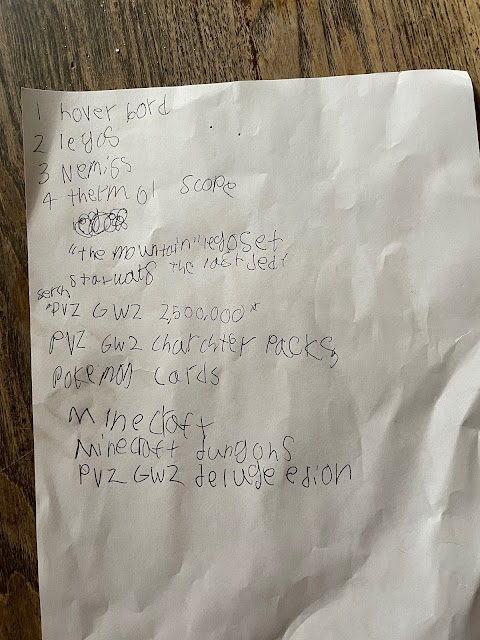 1 hover bord
2 legos
3 Nemiss
4 thermol scope
"the mountain" legoset
starwats the last Jedi
serch
"PVZ GW2 2,500,000"
PVZ GW2 charchter Packs
Pokemon cards
Minecraft
Minecraft dungons
PVZ GW2 deluge edion